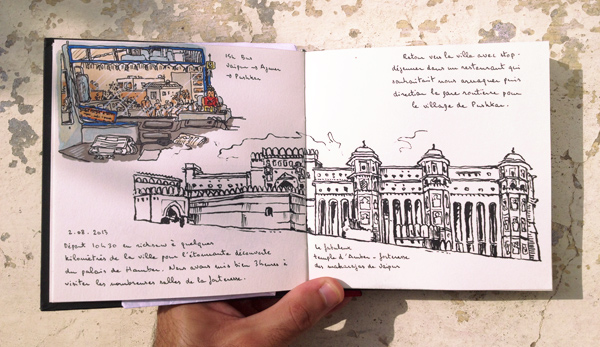 15h Bus
Jaipur → Ajmer
→ Pushkar
2.08.2013
Départ 10h30 en rickshaw à quelques
kilomètres de la ville pour l'étonnante découverte
du palais de Hamber. Nous avons mis bien 3 heures à
visiter les nombreuses salles de la forteresse.
Retour vers la ville avec stop-
déjeuner dans un restaurant qui
souhaitait nous arnaquer puis
direction la gare routière pour
le village de Pushkar.
Le fabuleux
temple d'Amber - forteresse
des maharajas de Jaipur